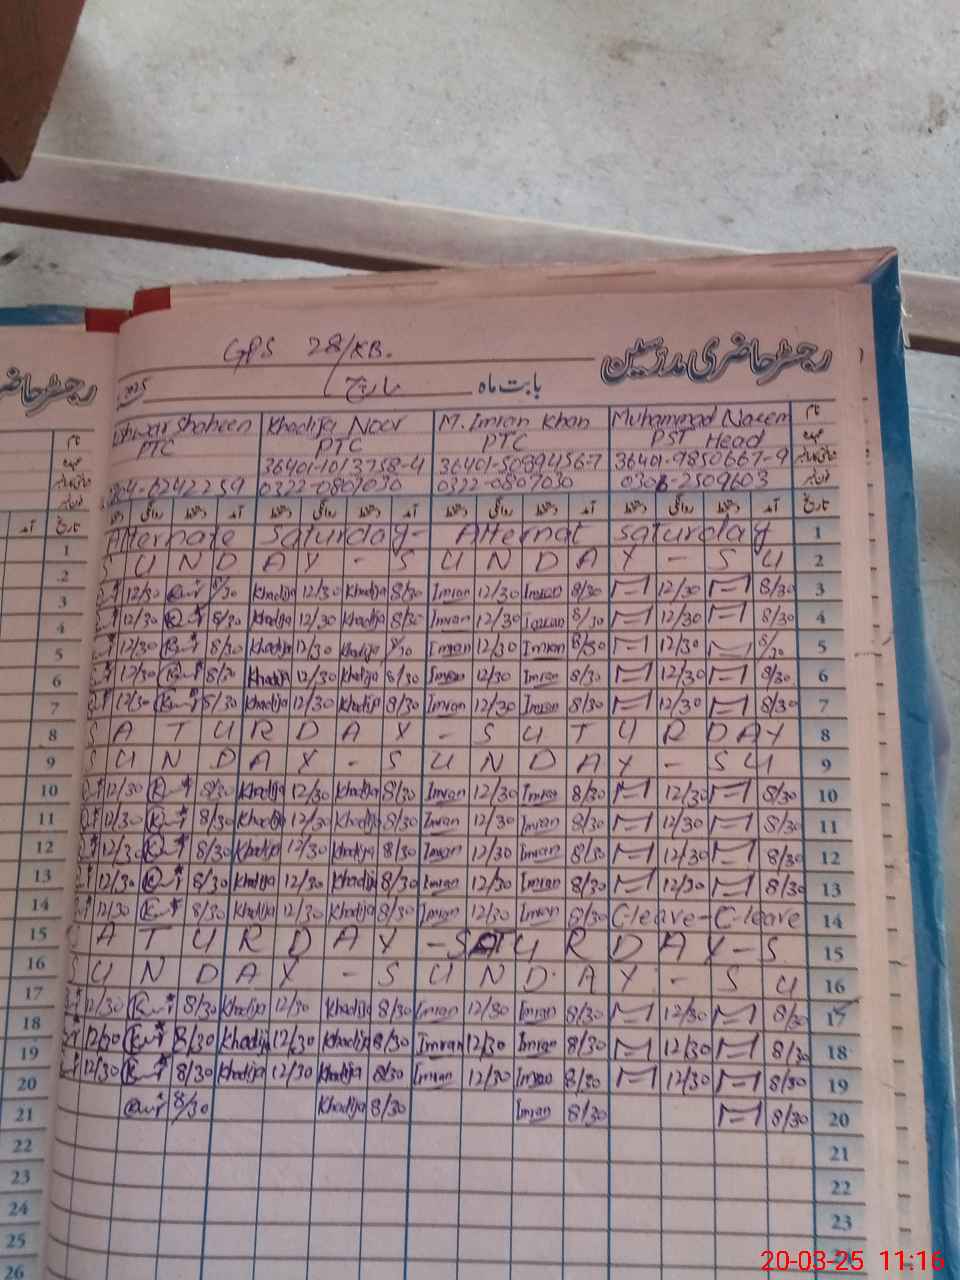 GPS 28/KB.
رجسٹر حاضری مدرسین
2025
بابت ماہ مارچ
Shaheen Khadija Noor M. Imran Khan Muhammad Naeem نام
PTC PTC PTC PST Head عہدہ
36401-1013758-4 36401-5089456-7 36401-9850667-9
0322-0807030 0322-0807030 0306-2509603
دستخط روانگی دستخط آمد دستخط روانگی دستخط آمد دستخط روانگی دستخط آمد دستخط روانگی دستخط آمد تاریخ
Alternate Saturday - Alternat saturday 1
S U N D A Y - S U N D A Y - S U 2
12/30 8/30 Khadija 12/30 Khadija 8/30 Imran 12/30 Imran 8/30 12/30 8/30 3
12/30 8/30 Khadija 12/30 Khadija 8/30 Imran 12/30 Imran 8/30 12/30 8/30 4
12/30 8/30 Khadija 12/30 Khadija 8/30 Imran 12/30 Imran 8/30 12/30 8/30 5
12/30 8/30 Khadija 12/30 Khadija 8/30 Imran 12/30 Imran 8/30 12/30 8/30 6
12/30 8/30 Khadija 12/30 Khadija 8/30 Imran 12/30 Imran 8/30 12/30 8/30 7
S A T U R D A Y - S U T U R D A Y 8
S U N D A Y - S U N D A Y - S U 9
12/30 8/30 Khadija 12/30 Khadija 8/30 Imran 12/30 Imran 8/30 12/30 8/30 10
12/30 8/30 Khadija 12/30 Khadija 8/30 Imran 12/30 Imran 8/30 12/30 8/30 11
12/30 8/30 Khadija 12/30 Khadija 8/30 Imran 12/30 Imran 8/30 12/30 8/30 12
12/30 8/30 Khadija 12/30 Khadija 8/30 Imran 12/30 Imran 8/30 12/30 8/30 13
12/30 8/30 Khadija 12/30 Khadija 8/30 Imran 12/30 Imran 8/30 C-leave-C-leave 14
S A T U R D A Y - S A T U R D A Y - S 15
S U N D A Y - S U N D A Y - S U 16
12/30 8/30 Khadija 12/30 Khadija 8/30 Imran 12/30 Imran 8/30 12/30 8/30 17
12/30 8/30 Khadija 12/30 Khadija 8/30 Imran 12/30 Imran 8/30 12/30 8/30 18
12/30 8/30 Khadija 12/30 Khadija 8/30 Imran 12/30 Imran 8/30 12/30 8/30 19
8/30 Khadija 8/30 Imran 8/30 8/30 20
21
22
23
رجسٹر حاضر
نام
تاریخ
آمد
1
2
3
4
5
6
7
8
9
10
11
12
13
14
15
16
17
18
19
20
21
22
23
24
25
26
20-03-25 11:16